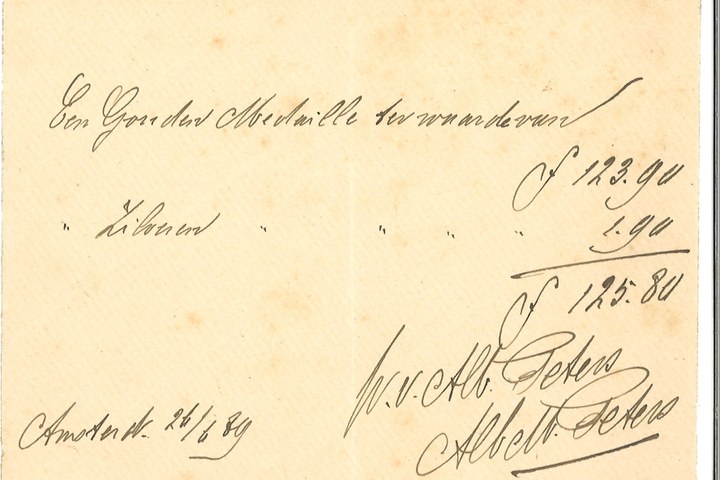 Een Gouden Medaille ter waarde van
ƒ 123.90
" Zilveren " " " " 1.90
ƒ 125.80
p.v. Alb. Peters
Alb M. Peters
Amsterd. 26/6 89